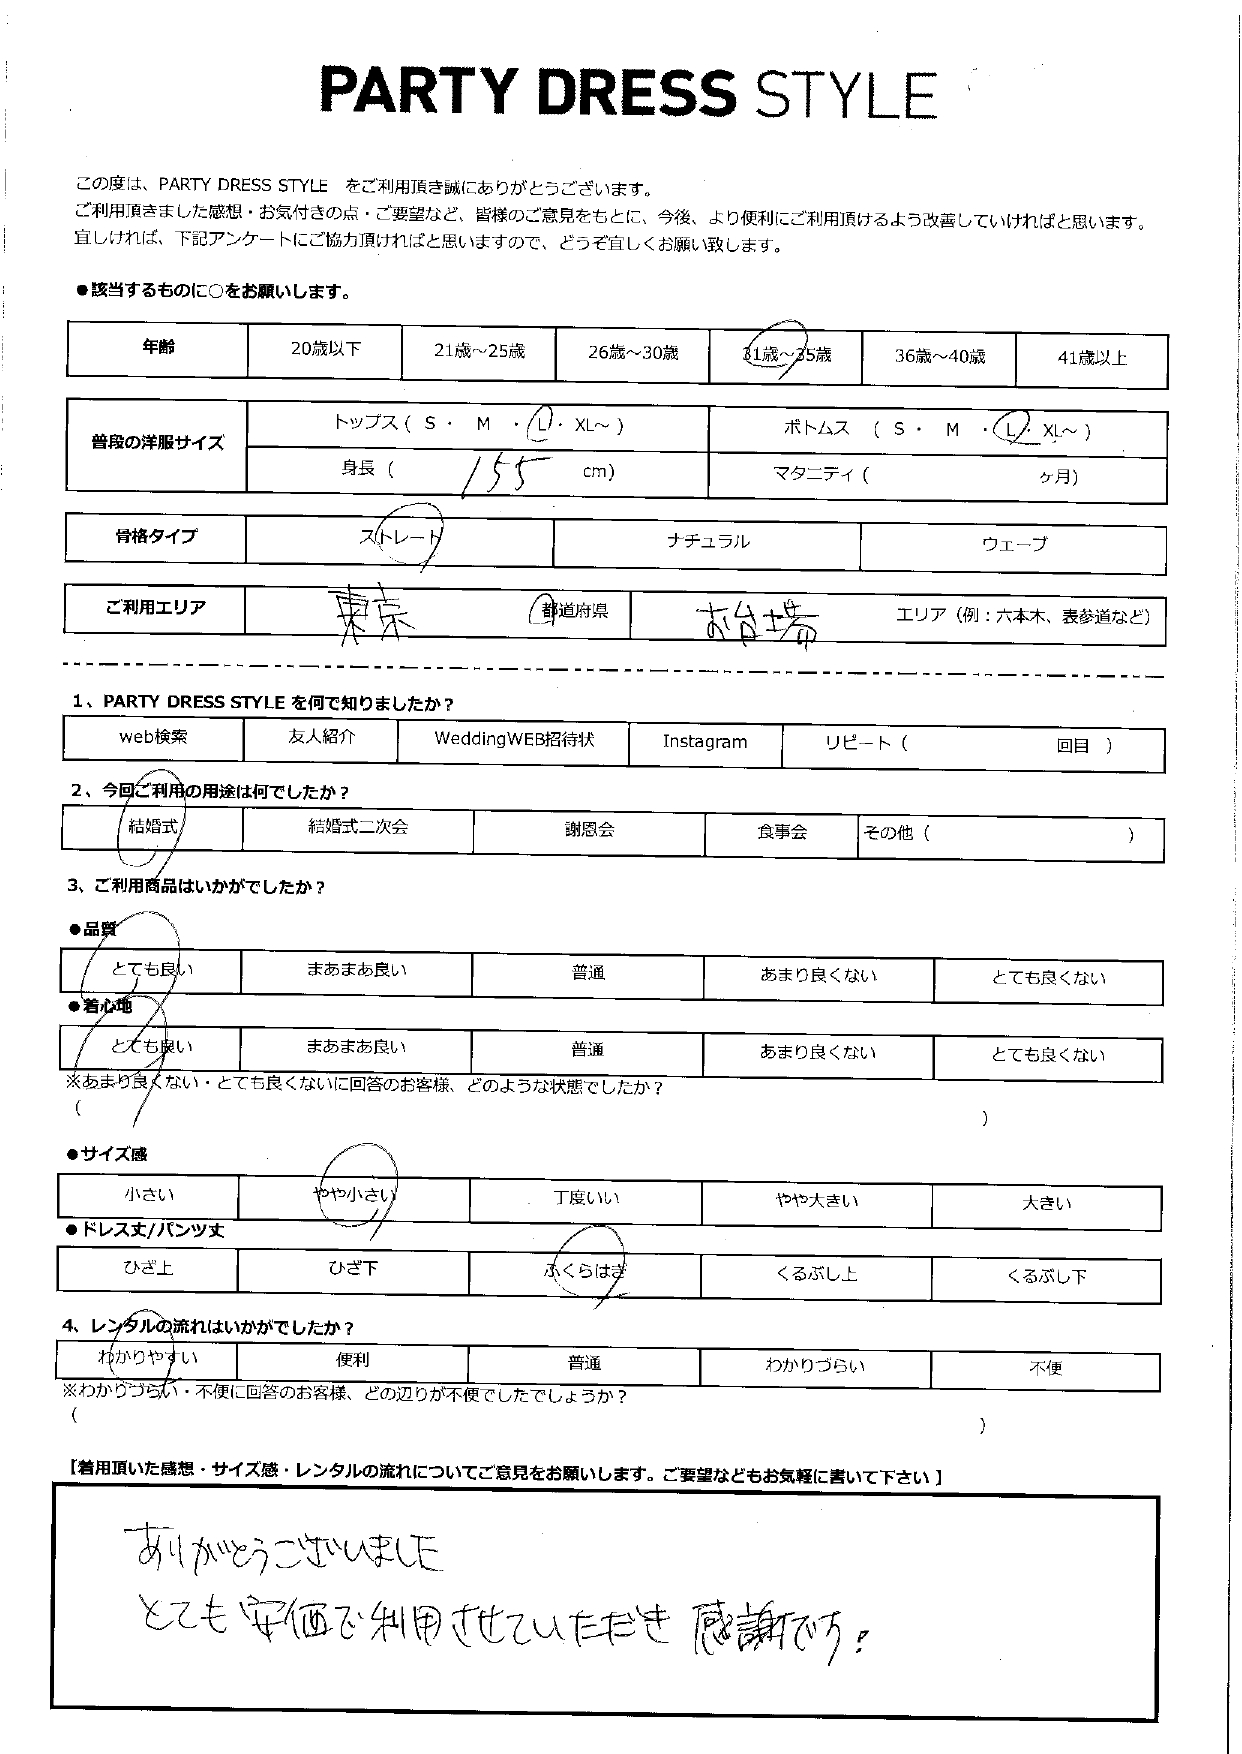 PARTY DRESS STYLE
この度は、PARTY DRESS STYLE をご利用頂き誠にありがとうございます。
ご利用頂きました感想・お気付きの点・ご要望など、皆様のご意見をもとに、今後、より便利にご利用頂けるよう改善していければと思います。
宜しければ、下記アンケートにご協力頂ければと思いますので、どうぞ宜しくお願い致します。
●該当するものに○をお願いします。
年齢 20歳以下 21歳～25歳 26歳～30歳 31歳～35歳 36歳～40歳 41歳以上
普段の洋服サイズ トップス ( S ・ M ・ L ・ XL～ ) ボトムス ( S ・ M ・ L ・ XL～ )
身長 ( 155 cm) マタニティ ( ヶ月)
骨格タイプ ストレート ナチュラル ウェーブ
ご利用エリア 東京 都道府県 お台場 エリア（例：六本木、表参道など）
1、PARTY DRESS STYLE を何で知りましたか？
web検索 友人紹介 WeddingWEB招待状 Instagram リピート ( 回目 )
2、今回ご利用の用途は何でしたか？
結婚式 結婚式二次会 謝恩会 食事会 その他 ( )
3、ご利用商品はいかがでしたか？
●品質
とても良い まあまあ良い 普通 あまり良くない とても良くない
●着心地
とても良い まあまあ良い 普通 あまり良くない とても良くない
※あまり良くない・とても良くないに回答のお客様、どのような状態でしたか？
( )
●サイズ感
小さい やや小さい 丁度いい やや大きい 大きい
●ドレス丈/パンツ丈
ひざ上 ひざ下 ふくらはぎ くるぶし上 くるぶし下
4、レンタルの流れはいかがでしたか？
わかりやすい 便利 普通 わかりづらい 不便
※わかりづらい・不便に回答のお客様、どの辺りが不便でしたでしょうか？
( )
【着用頂いた感想・サイズ感・レンタルの流れについてご意見をお願いします。ご要望などもお気軽に書いて下さい】
ありがとうございました
とても安価で利用させていただき感謝です！